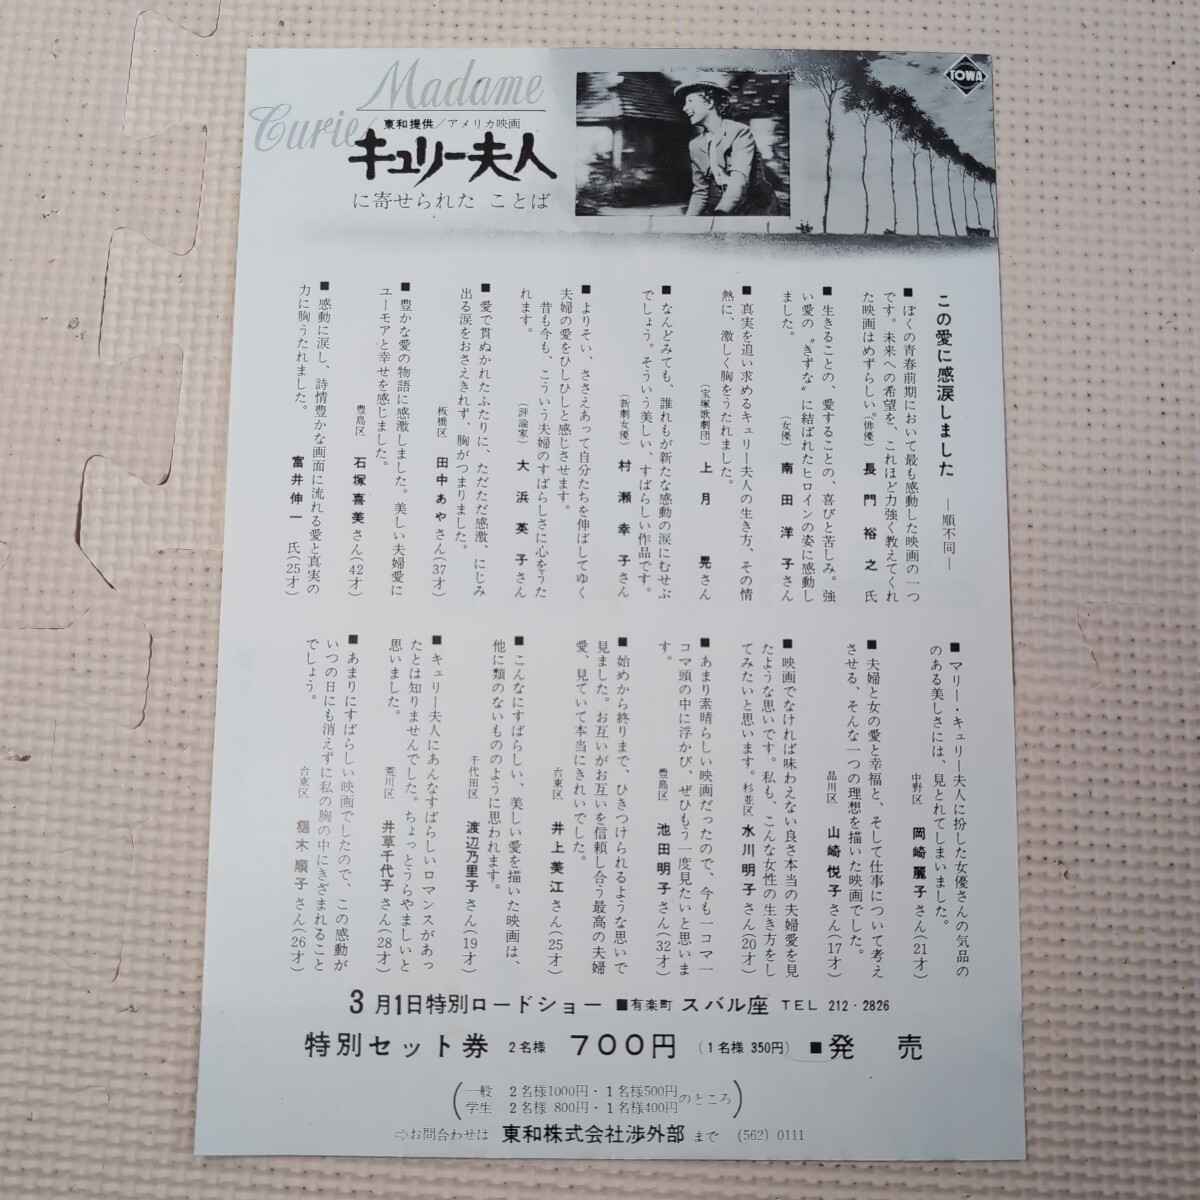 Madame
Curie
東和提供/アメリカ映画
キュリー夫人
に寄せられた ことば
TOWA
この愛に感涙しました ―順不同―
■ぼくの青春前期において最も感動した映画の一つ
です。未来への希望を、これほど力強く教えてくれ
た映画はめずらしい。(俳優) 長門裕之氏
■生きることの、愛することの、喜びと苦しみ。強
い愛の〝きずな〟に結ばれたヒロインの姿に感動し
ました。 (女優) 南田洋子さん
■真実を追い求めるキュリー夫人の生き方、その情
熱に、激しく胸をうたれました。
(宝塚歌劇団) 上月晃さん
■なんどみても、誰れもが新たな感動の涙にむせぶ
でしょう。そういう美しい、すばらしい作品です。
(新劇女優) 村瀬幸子さん
■よりそい、ささえあって自分たちを伸ばしてゆく
夫婦の愛をひしひしと感じさせます。
昔も今も、こういう夫婦のすばらしさに心をうた
れます。 (評論家) 大浜英子さん
■愛で貫ぬかれたふたりに、ただただ感激、にじみ
出る涙をおさえきれず、胸がつまりました。
板橋区 田中あやさん(37才)
■豊かな愛の物語に感激しました。美しい夫婦愛に
ユーモアと幸せを感じました。
豊島区 石塚喜美さん(42才)
■感動に涙し、詩情豊かな画面に流れる愛と真実の
力に胸うたれました。 富井伸一氏(25才)
■マリー・キュリー夫人に扮した女優さんの気品の
のある美しさには、見とれてしまいました。
中野区 岡崎麗子さん(21才)
■夫婦と女の愛と幸福と、そして仕事について考え
させる、そんな一つの理想を描いた映画でした。
品川区 山崎悦子さん(17才)
■映画でなければ味わえない良さ本当の夫婦愛を見
たような思いです。私も、こんな女性の生き方をし
てみたいと思います。杉並区 水川明子さん(20才)
■あまり素晴らしい映画だったので、今も一コマ一
コマ頭の中に浮かび、ぜひもう一度見たいと思いま
す。 豊島区 池田明子さん(32才)
■始めから終りまで、ひきつけられるような思いで
見ました。お互いがお互いを信頼し合う最高の夫婦
愛、見ていて本当にきれいでした。
台東区 井上美江さん(25才)
■こんなにすばらしい、美しい愛を描いた映画は、
他に類のないもののように思われます。
千代田区 渡辺乃里子さん(19才)
■キュリー夫人にあんなすばらしいロマンスがあっ
たとは知りませんでした。ちょっとうらやましいと
思いました。 荒川区 井草千代子さん(28才)
■あまりにすばらしい映画でしたので、この感動が
いつの日にも消えずに私の胸の中にきざまれること
でしょう。 台東区 樋木順子さん(26才)
3月1日特別ロードショー ■有楽町 スバル座 TEL 212・2826
特別セット券 2名様 700円 (1名様 350円) ■発売
(一般 2名様1000円・1名様500円
学生 2名様 800円・1名様400円のところ)
⇨お問合わせは 東和株式会社渉外部 まで (562) 0111